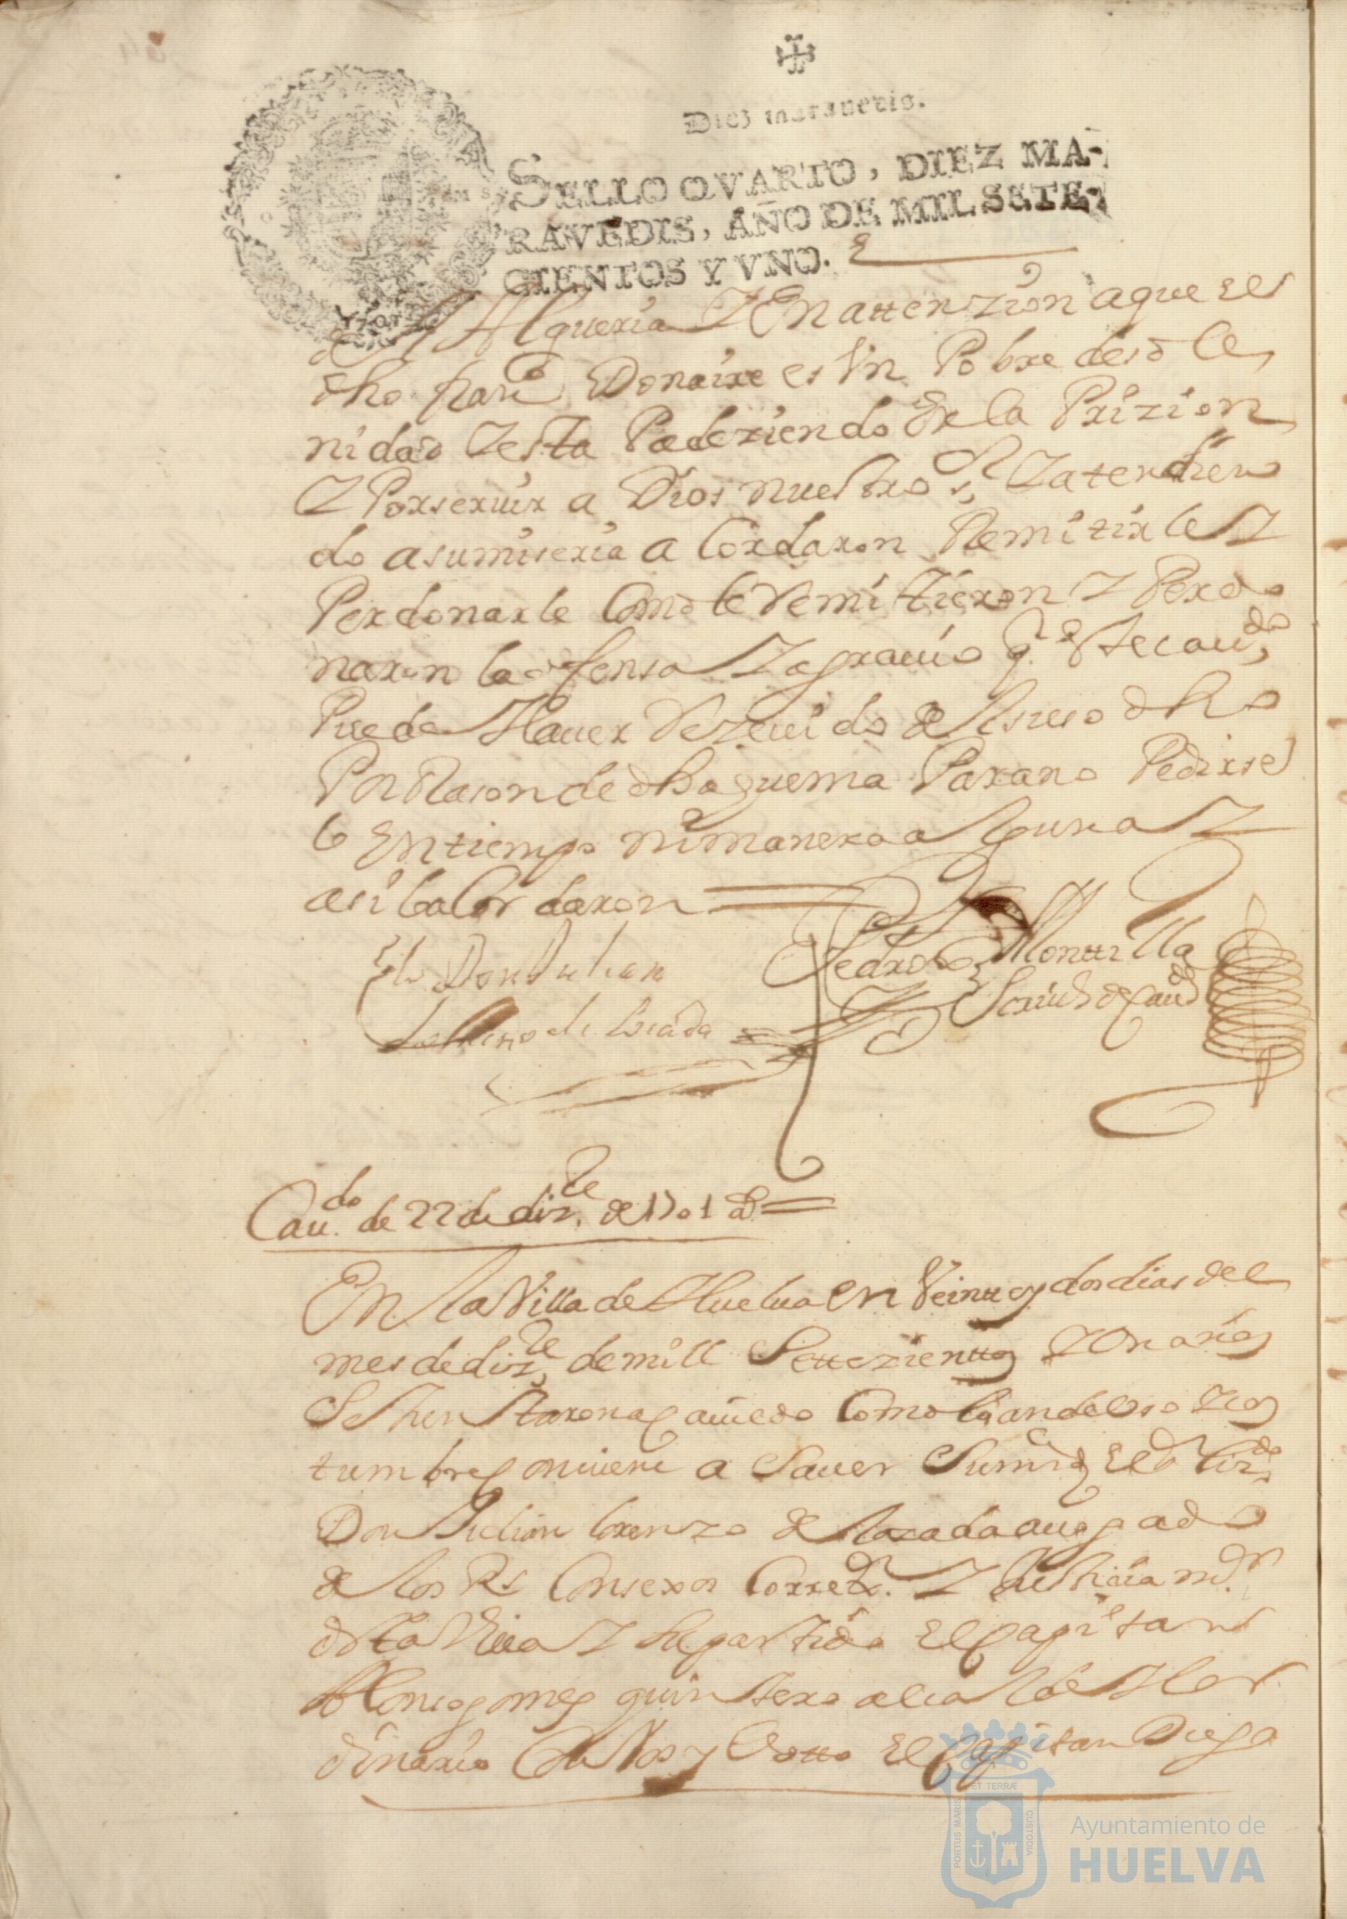 Diez maravedis.
SELLO QVARTO, DIEZ MA-
RAVEDIS, AÑO DE MIL SETE-
CIENTOS Y VNO.
Alqueria Y En attenzion a que el
dho fran.co Donaire es Vn Pobre de solē
nidad Y esta Padeziendo En la Prizion
Y Por seruir a Dios nuestro S.r Y atendien
do a su miseria a Cordaron Remitirle Y
Perdonarle Como le Remitieron Y Perdo
naron la ofensa Y agrauio q. este cau.do
Puede Hauer Rezeuido de el suso dho
Por Rason de dha quema Para no Pedirse
lo En tiempo ni manera alguna Y
asi lo a Cordaron
El L.do Don Julian
Lorenzo de Lozada
Pedro de Monttilla
Scriu.o de Cau.do
Cau.do de 22 de diz.re de 1701 a.s
En la Villa de Huelua en Veintte y dos dias del
mes de diz.re de mill Settezienttos Y Un años
Se Juntaron a cauildo Como lo han de Uso Y cos
tumbre conuiene a Sauer Su m.rd El S.r Liz.do
Don Julian Lorenzo de Lozada auogado
de los R.s Consexos Corre.dor Y Justicia m.or
de esta Villa Y su partido El Capitan
Alonso gomez quintero alcalde Hor
dinario Con Vos y Votto El Capitan Diego
PORTUS MARIS ET TERRÆ CUSTODIA
Ayuntamiento de
HUELVA